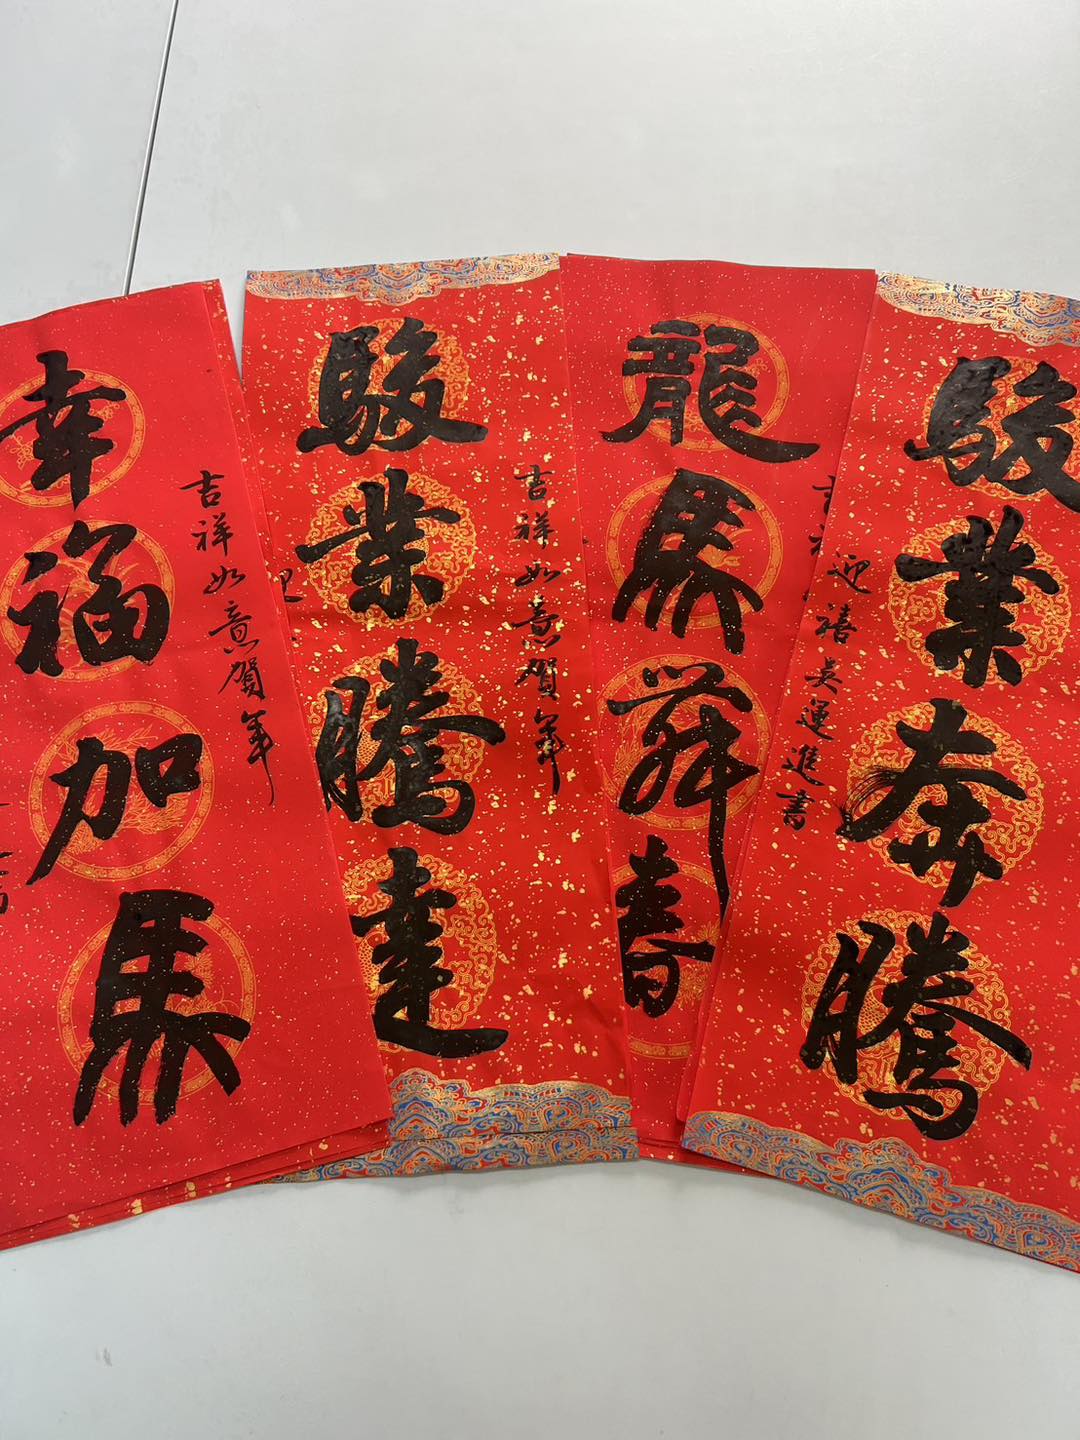 幸福加馬
吉祥如意賀年
駿業騰達
吉祥如意賀年
迎
龍馬舞春
吉
駿業奔騰
迎禧吳運進書